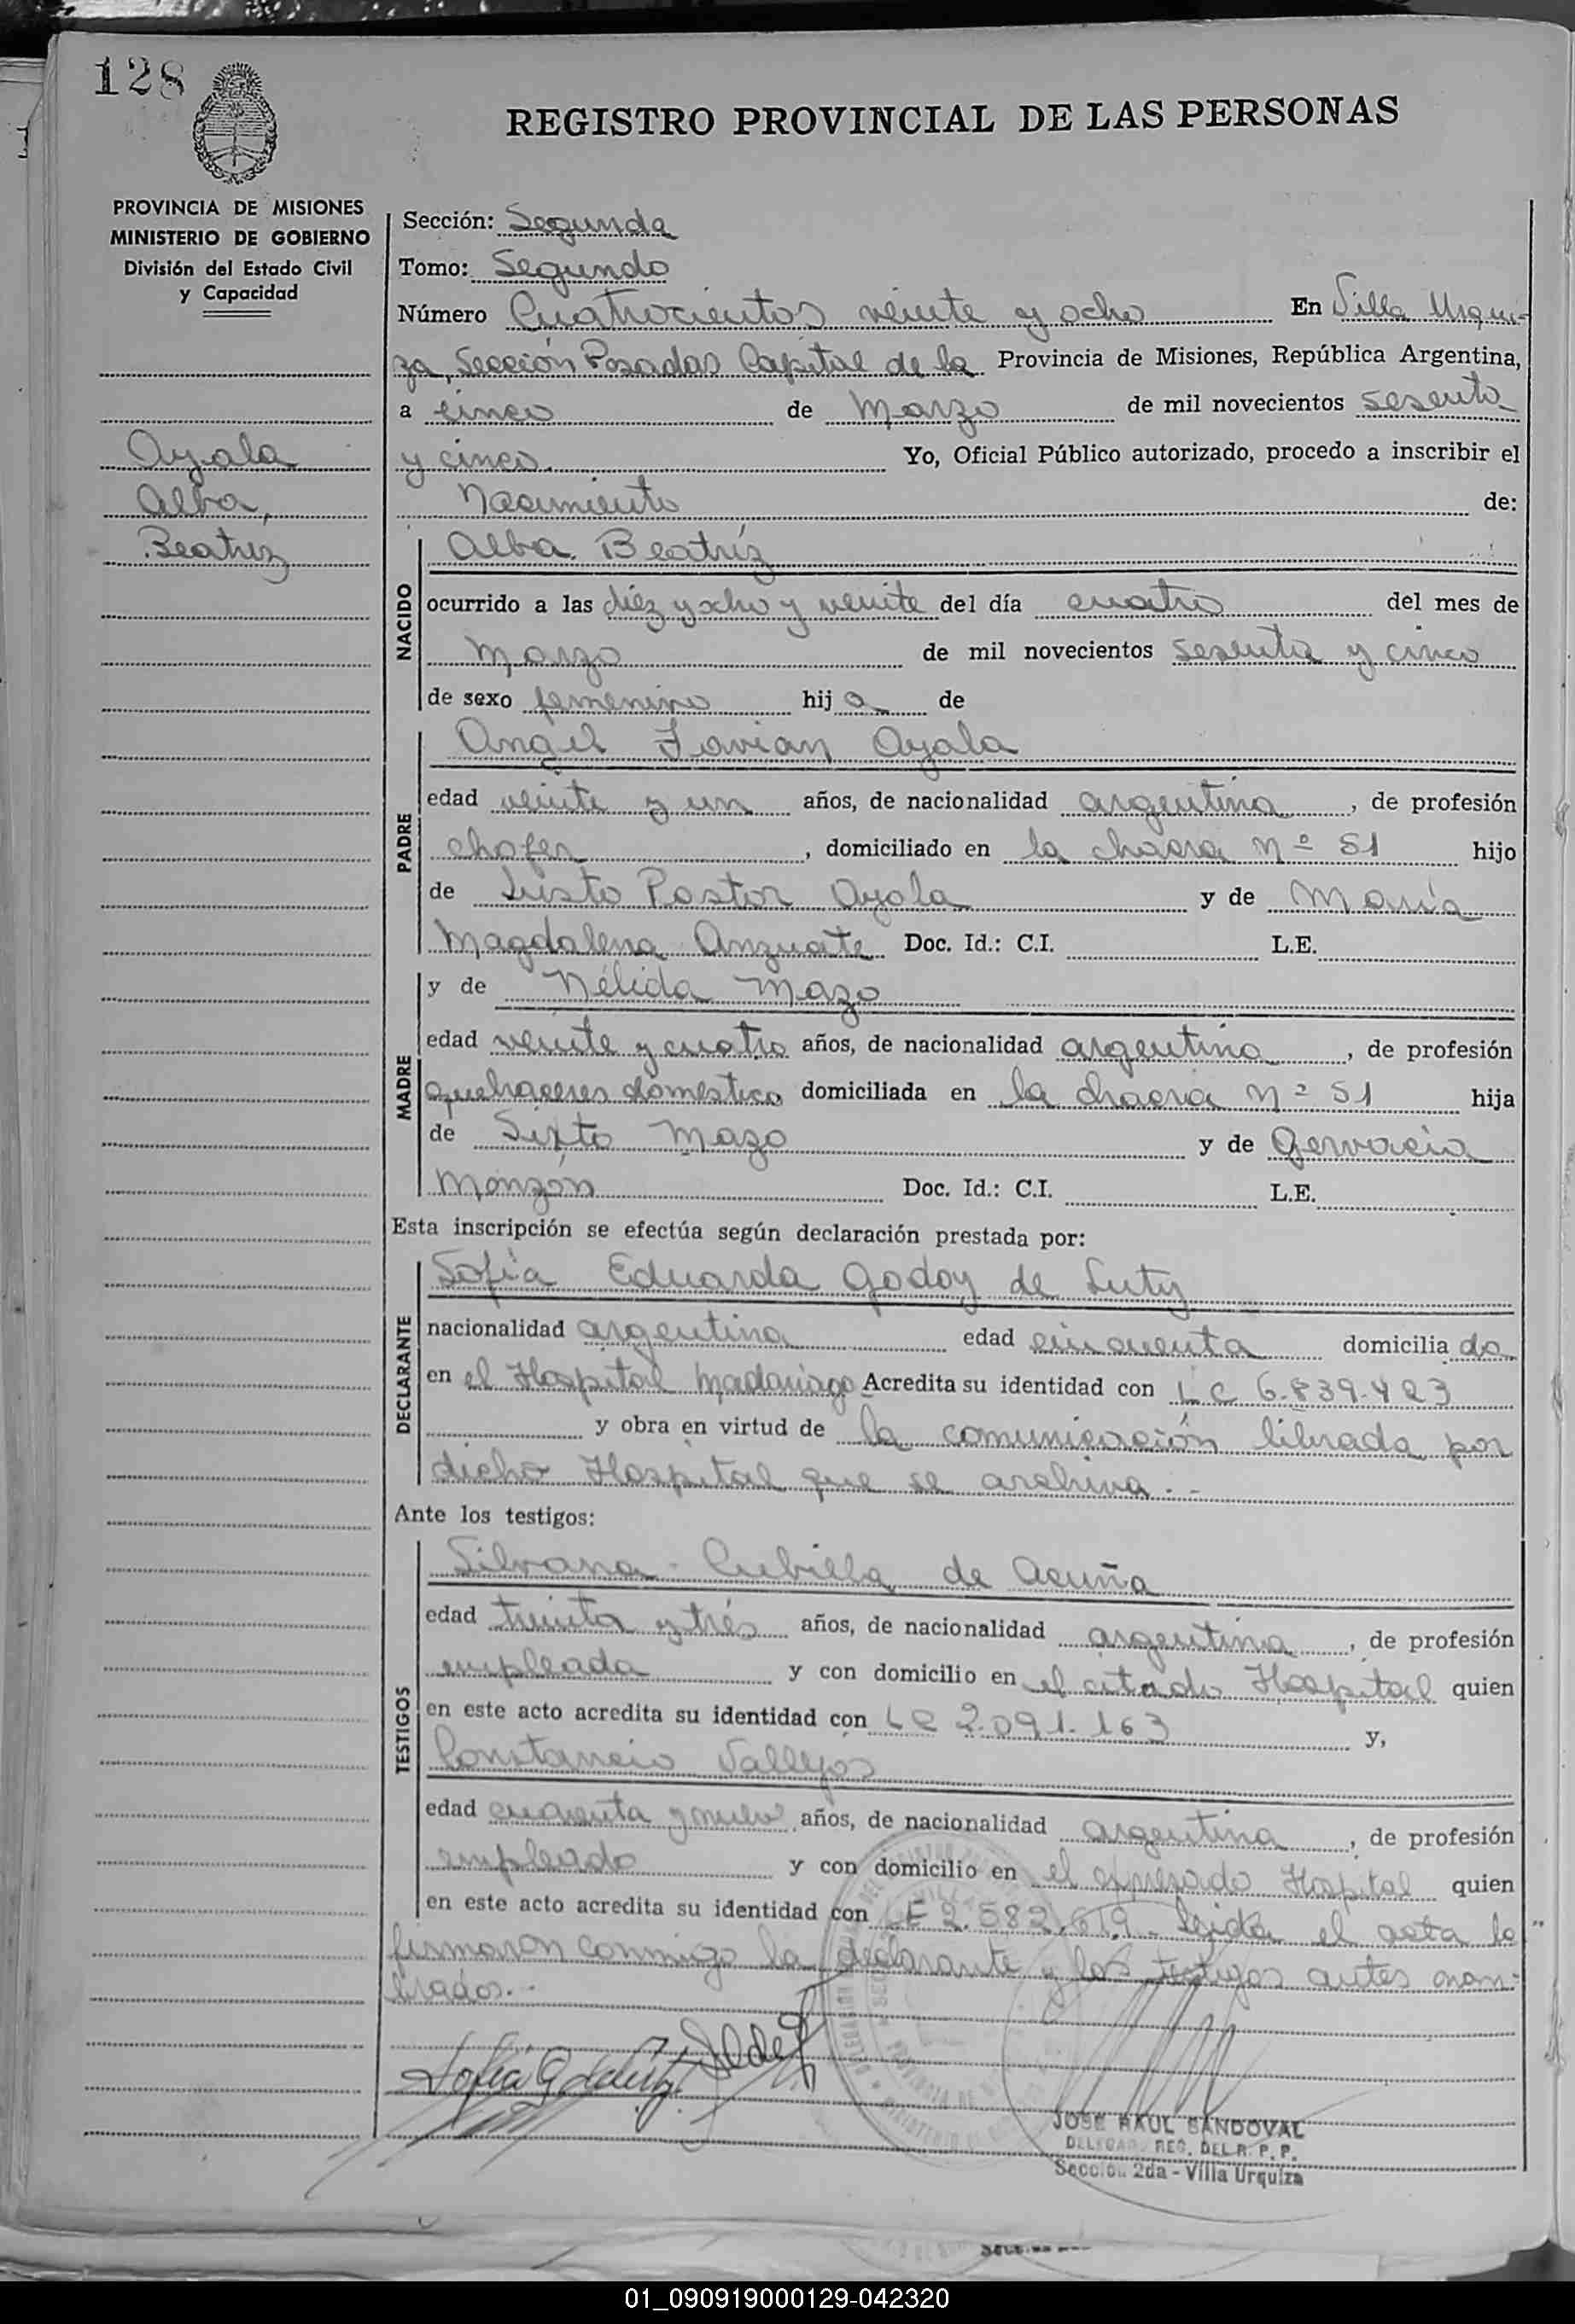 128
REGISTRO PROVINCIAL DE LAS PERSONAS
PROVINCIA DE MISIONES
MINISTERIO DE GOBIERNO
División del Estado Civil
y Capacidad
Ayala
Alba,
Beatriz
Sección: Segunda
Tomo: Segundo
Número Cuatrocientos veinte y ocho En Villa Urqui-
za, Sección Posadas Capital de la Provincia de Misiones, República Argentina,
a cinco de Marzo de mil novecientos sesenta
y cinco. Yo, Oficial Público autorizado, procedo a inscribir el
Nacimiento de:
NACIDO
Alba Beatríz
ocurrido a las diéz y ocho y veinte del día cuatro del mes de
Marzo de mil novecientos sesenta y cinco
de sexo femenino hij a de
PADRE
Angel Favian Ayala
edad veinte y un años, de nacionalidad argentina, de profesión
chofer, domiciliado en la chacra nº 51 hijo
de Justo Pastor Ayala y de María
Magdalena Doc. Id.: C.I. L.E.
MADRE
y de Nélida Mazo
edad veinte y cuatro años, de nacionalidad argentina, de profesión
quehaceres domestico, domiciliada en la chacra nº 51 hija
de Sixto Mazo y de Gervacia
Monzón Doc. Id.: C.I. L.E.
Esta inscripción se efectúa según declaración prestada por:
DECLARANTE
Sofia Eduarda Godoy de Luty
nacionalidad argentina edad cincuenta domicilia da
en el Hospital Madariaga Acredita su identidad con LC 6.839.423
y obra en virtud de la comunicación librada por
dicho Hospital que se archiva.-
Ante los testigos:
TESTIGOS
Silvana Cubilla de Acuña
edad treinta y trés años, de nacionalidad argentina, de profesión
empleada y con domicilio en el citado Hospital quien
en este acto acredita su identidad con LC 2.091.163 y,
Constancio Vallejos
edad cuarenta y nueve años, de nacionalidad argentina, de profesión
empleado y con domicilio en el expresado Hospital quien
en este acto acredita su identidad con LE 2.582.619.- Leida el acta la
firmaron conmigo la declarante y los testigos antes nom-
brados.-
JOSE RAUL SANDOVAL
REG. DEL R. P. P.
Sección 2da - Villa Urquiza
01_090919000129-042320